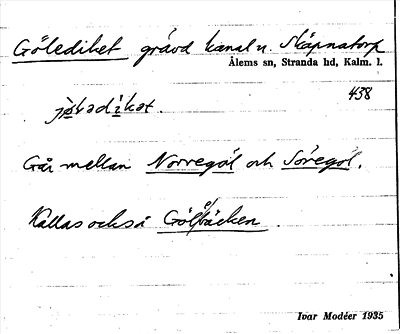 Gölediket grävd kanal u. Skäpnatorp
Ålems sn, Stranda hd, Kalm. l.
438
Går mellan Norregöl och Söregöl.
Kallas också Gölbäcken.
Ivar Modéer 1935